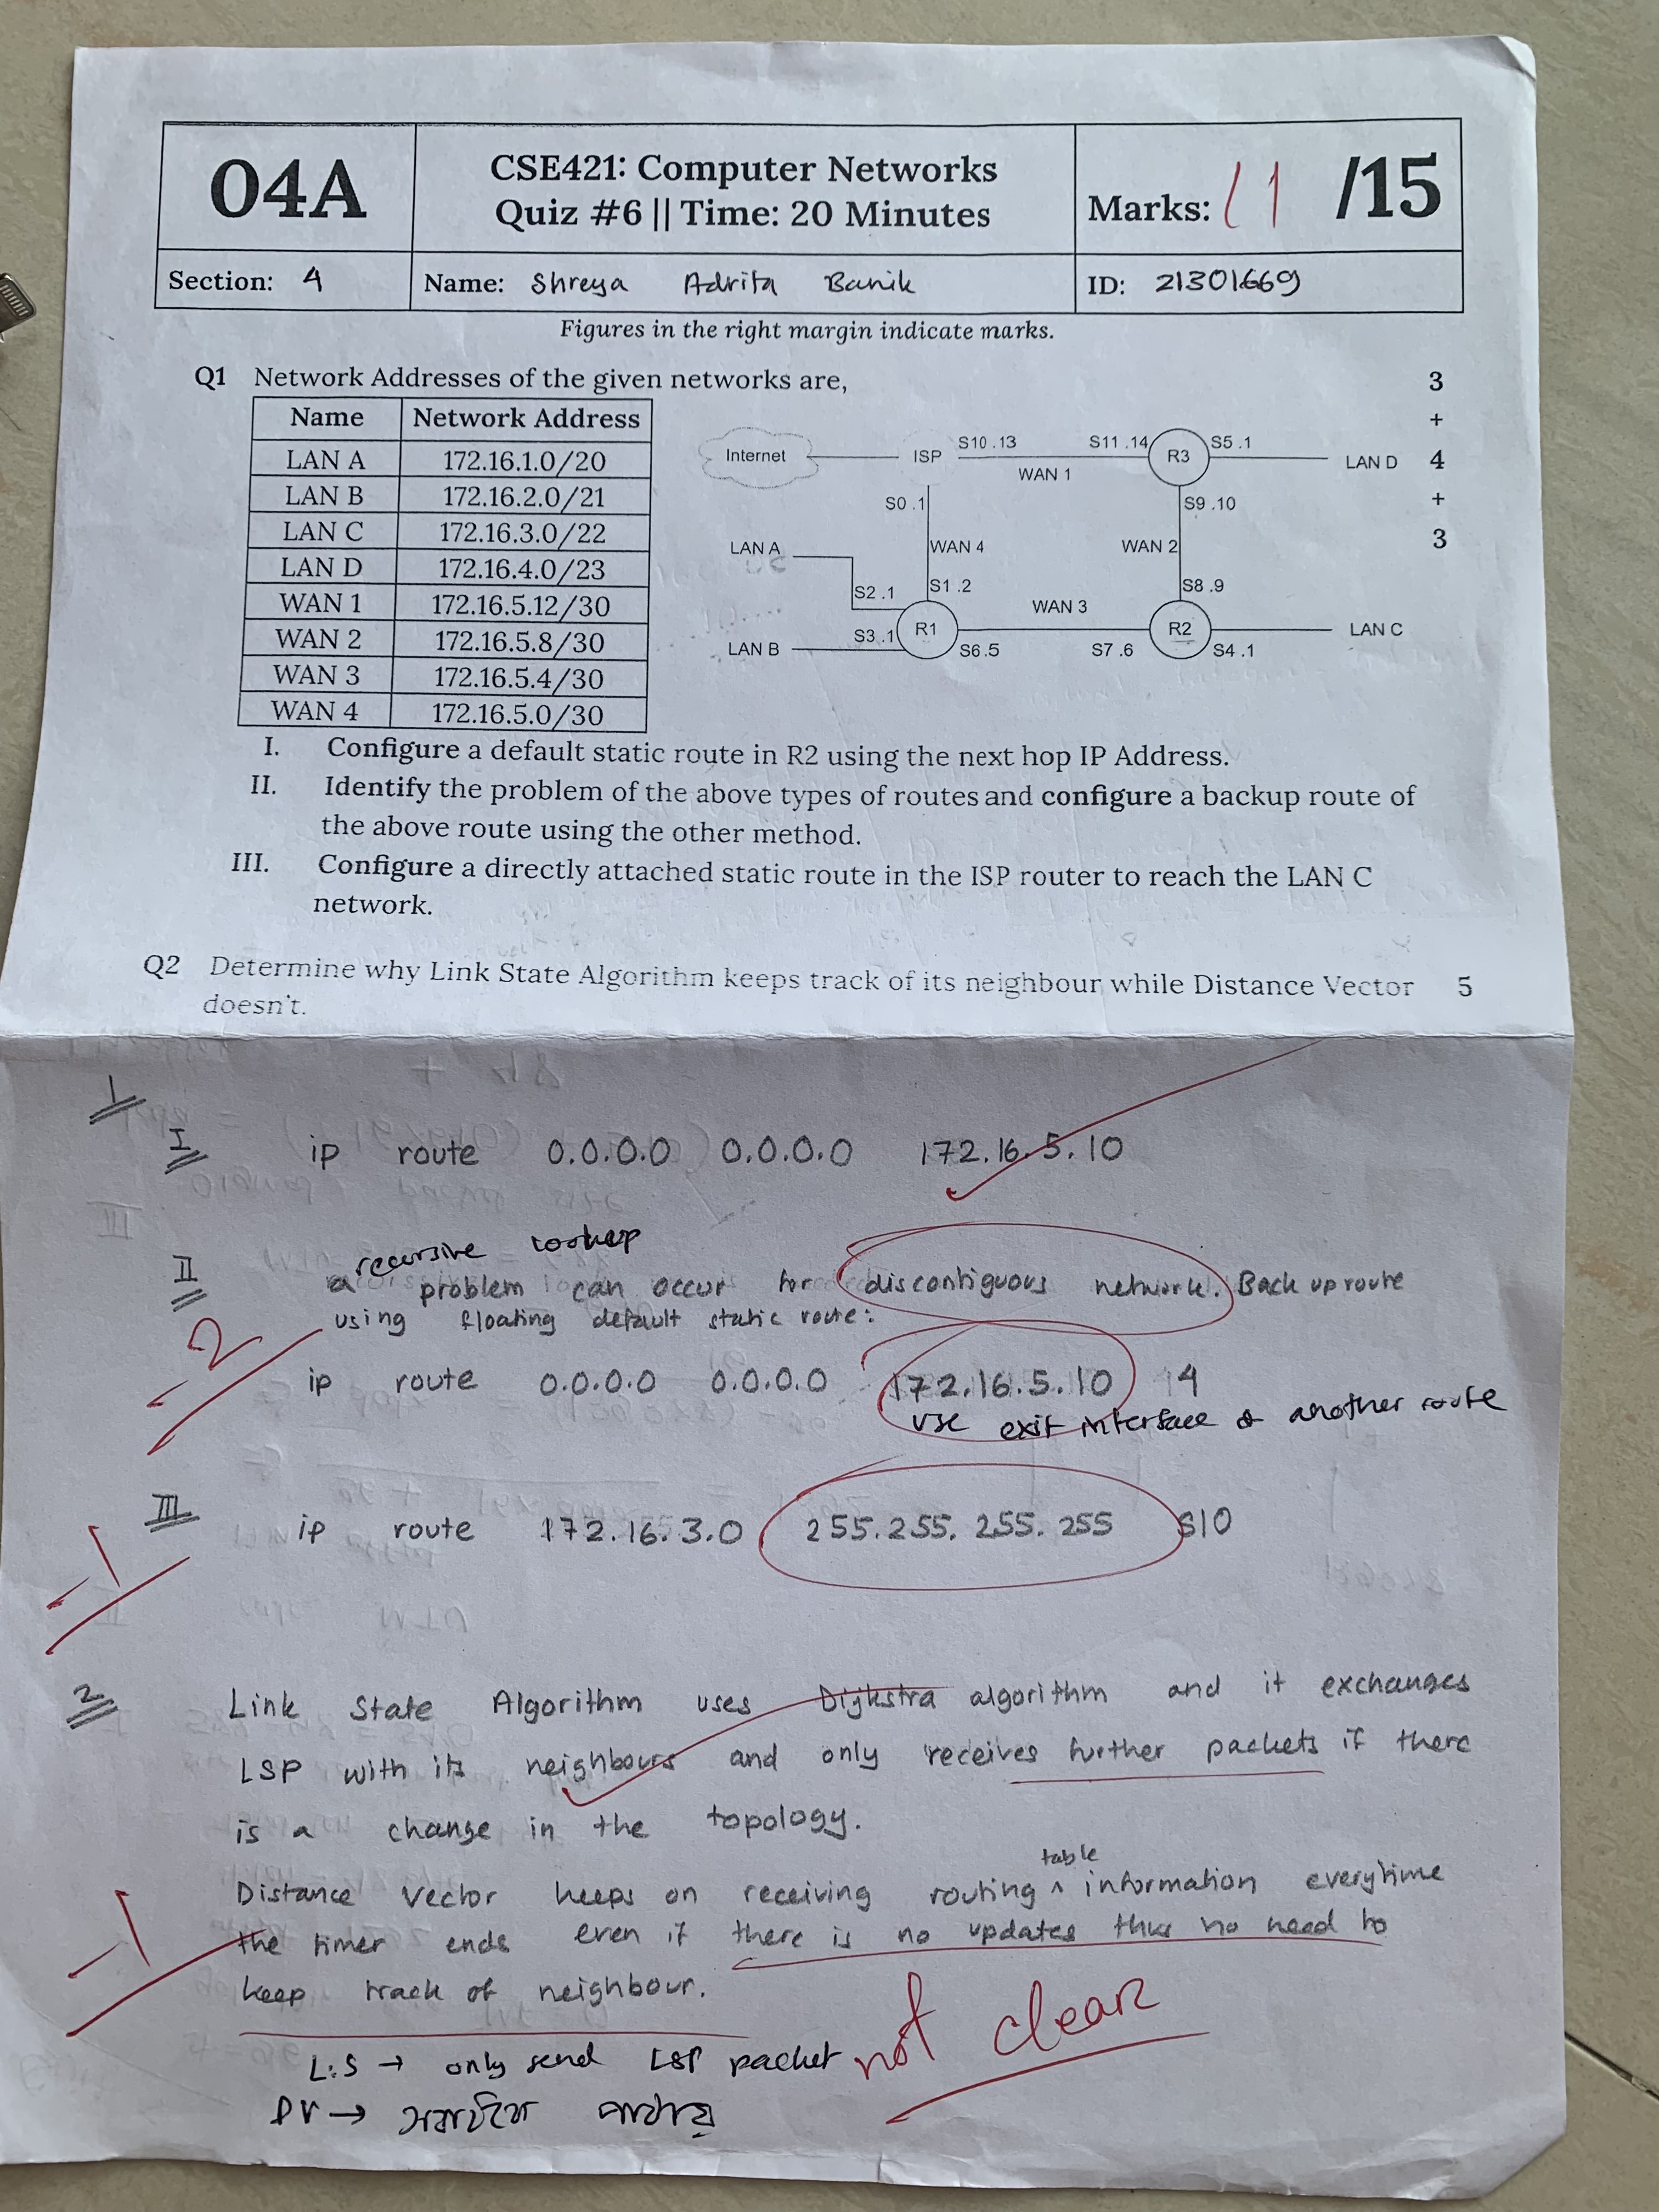 04A
CSE421: Computer Networks
Quiz #6 || Time: 20 Minutes
Marks: 11 /15
Section: 4
Name: Shreya Adrita Banik
ID: 21301669
Figures in the right margin indicate marks.
Q1 Network Addresses of the given networks are,
3
+
4
+
3
Name Network Address
LAN A 172.16.1.0/20
LAN B 172.16.2.0/21
LAN C 172.16.3.0/22
LAN D 172.16.4.0/23
WAN 1 172.16.5.12/30
WAN 2 172.16.5.8/30
WAN 3 172.16.5.4/30
WAN 4 172.16.5.0/30
Internet ISP S10 .13 S11 .14 R3 S5 .1 LAN D
WAN 1
S0 .1 S9 .10
LAN A WAN 4 WAN 2
S2 .1 S1 .2 S8 .9
WAN 3
S3 .1 R1 R2 LAN C
LAN B S6 .5 S7 .6 S4 .1
I. Configure a default static route in R2 using the next hop IP Address.
II. Identify the problem of the above types of routes and configure a backup route of
the above route using the other method.
III. Configure a directly attached static route in the ISP router to reach the LAN C
network.
Q2 Determine why Link State Algorithm keeps track of its neighbour while Distance Vector 5
doesn't.
1
I ip route 0.0.0.0 0.0.0.0 172.16.5.10
recursive lookup
II a problem can occur for discontiguous network. Back up route
using floating default static route:
-2
ip route 0.0.0.0 0.0.0.0 172.16.5.10 4
use exit interface & another route
III ip route 172.16.3.0 255.255.255.255 S10
-1
2 Link State Algorithm uses Dijkstra algorithm and it exchanges
LSP with its neighbours and only receives further packets if there
is a change in the topology.
table
Distance Vector keeps on receiving routing ^ information everytime
the timer ends even if there is no updates thus no need to
-1
keep track of neighbour.
not clear
L.S → only send LSP packet
DV → সবাইকে পাঠায়